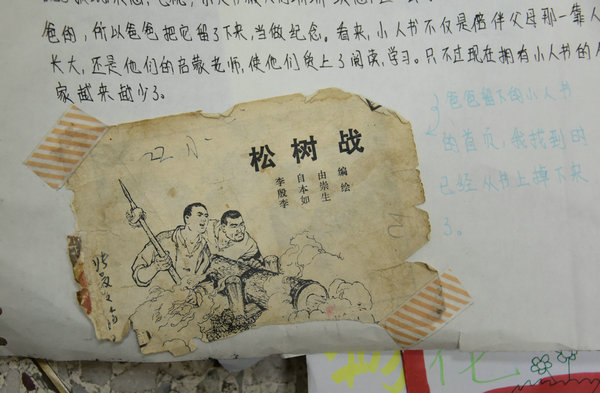 爸的,所以爸爸把它留了下来,当做纪念。看来,小人书不仅是陪伴父母那一辈人
长大,还是他们的启蒙老师,使他们爱上了阅读,学习。只不过现在拥有小人书的人
家越来越少了。
松树战
李自由 编
殷本崇 绘
李如生
爸爸留下的小人书
的首页,我找到时
已经从书上掉下来
了。